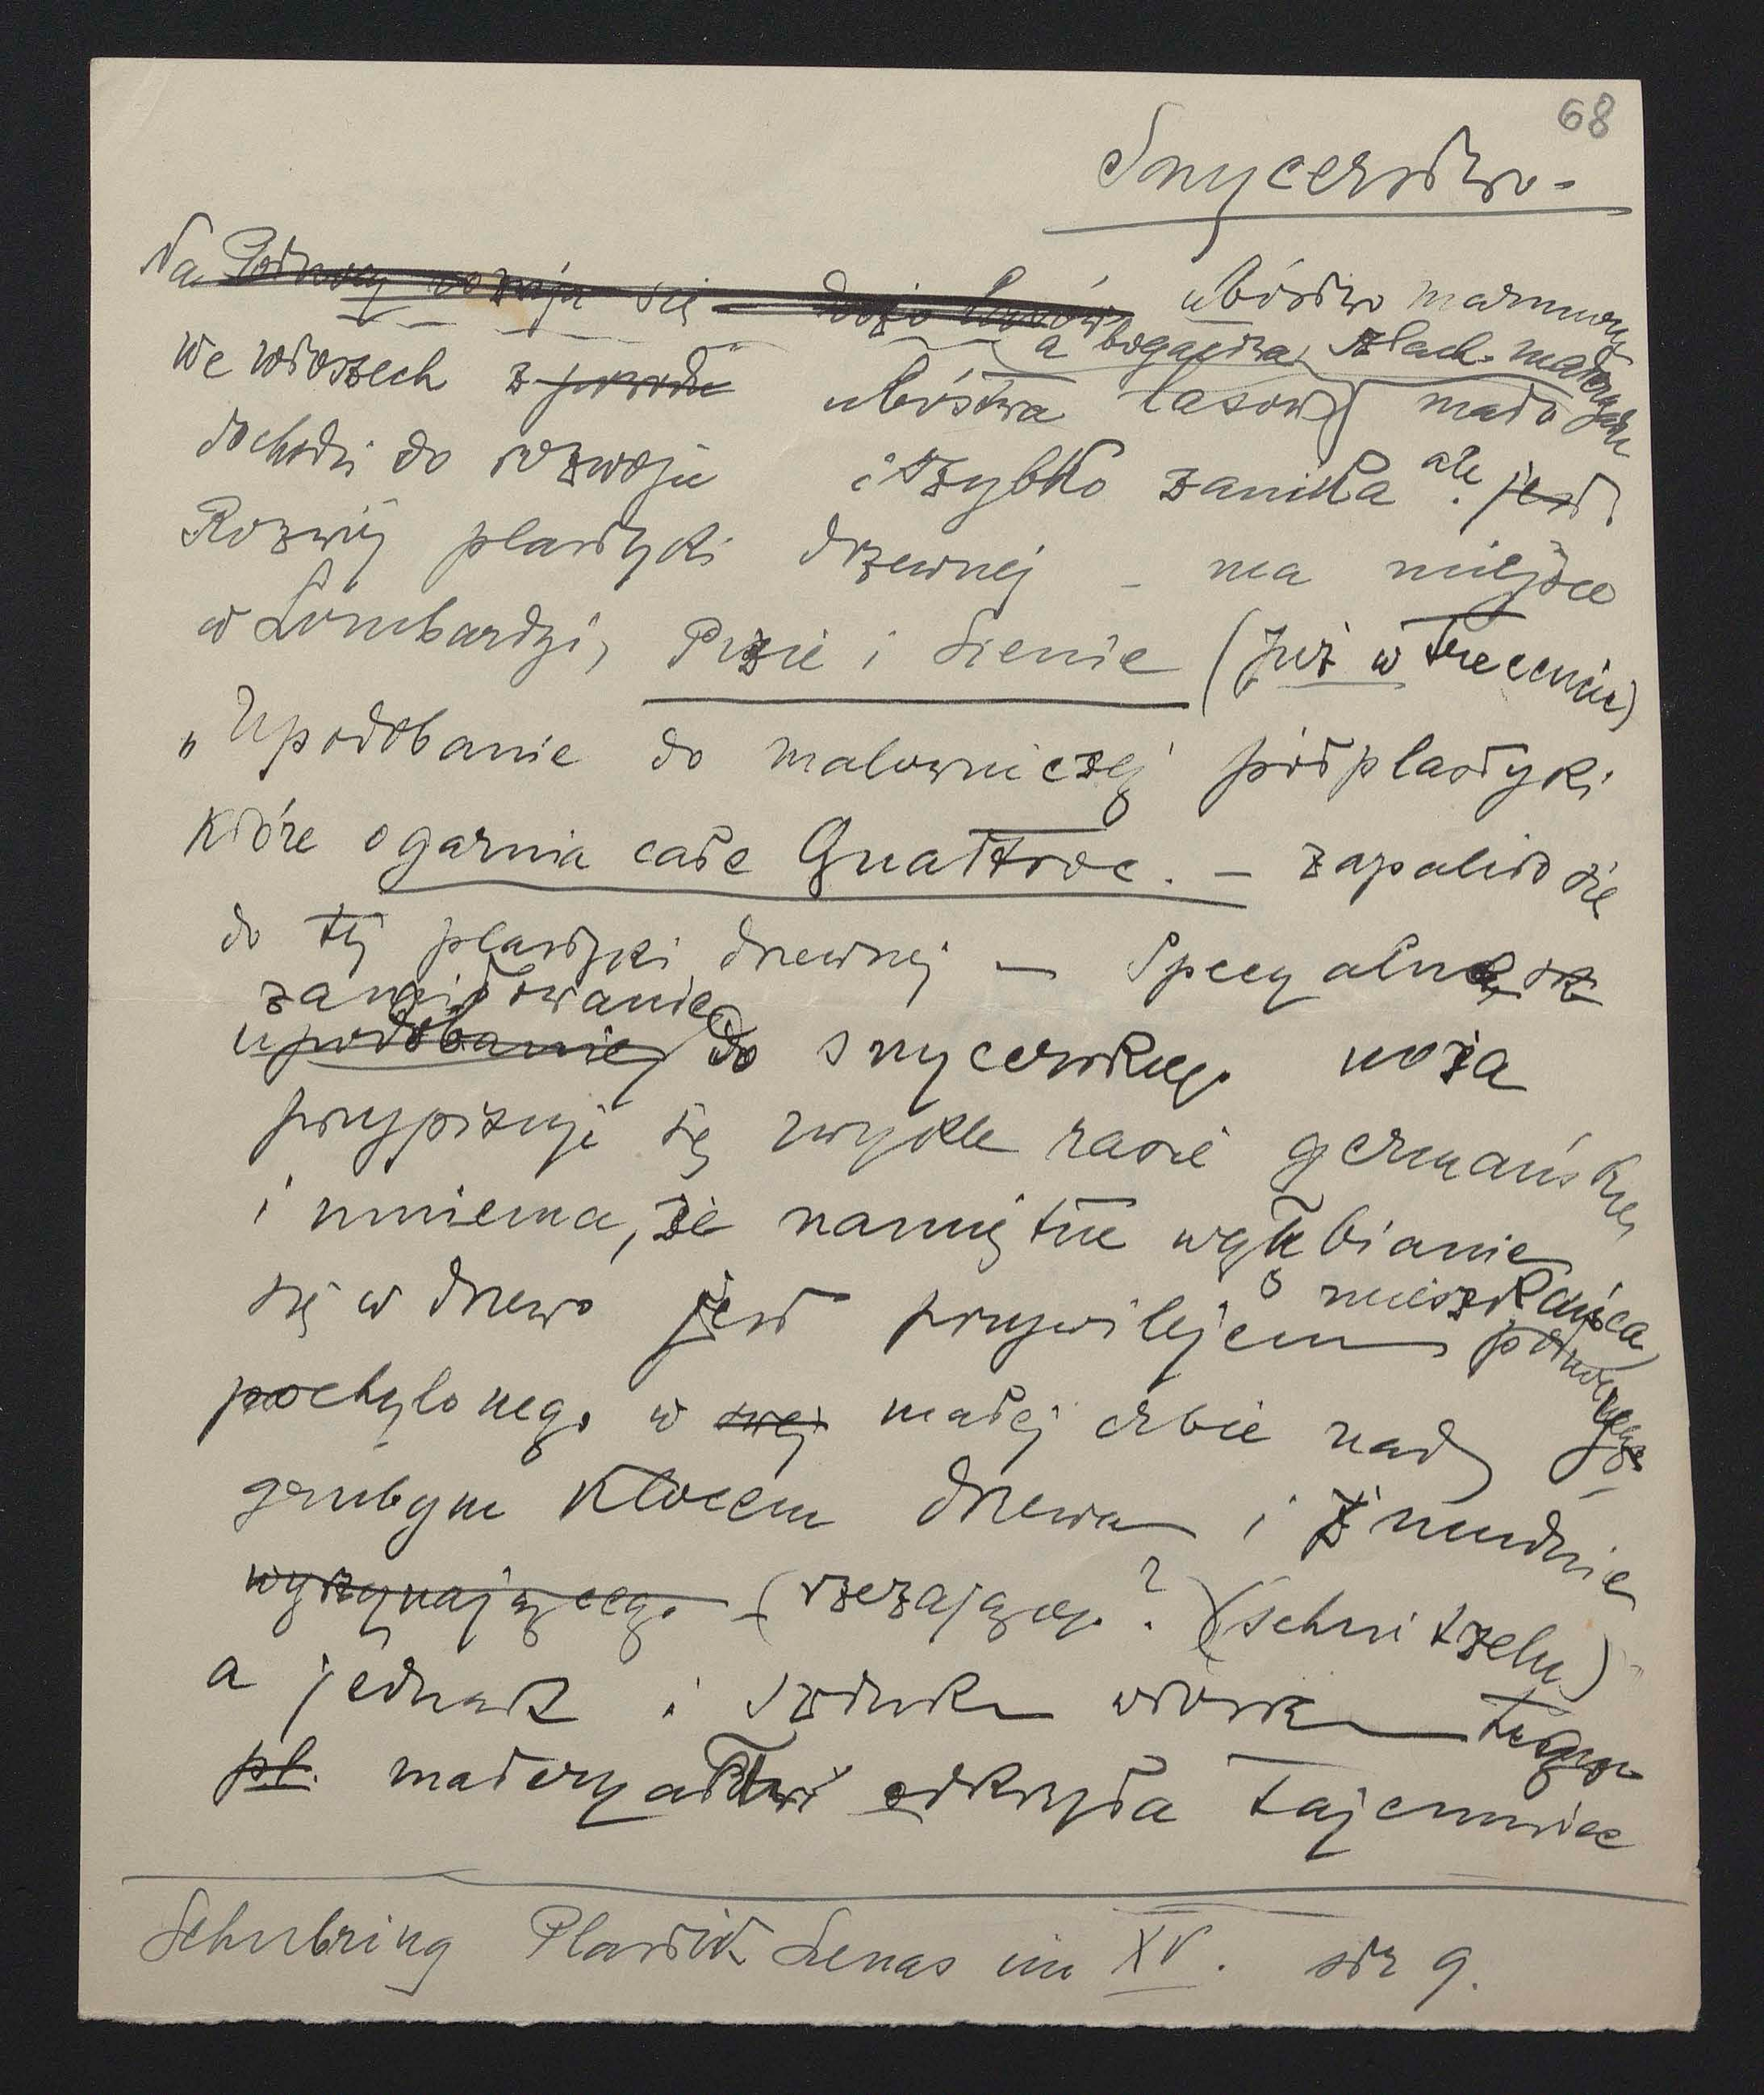 68
Snycerstwo.
Na Północy rozwija się – dużo lasów ubóstwo marmuru
a bogactwa szlach. materyału
we włoszech z powodu ubóstwa lasów mało
dochodzi do rozwoju i szybko zanika ale jest
Rozwój plastyki drzewnej – ma miejsce
w Lombardzi, Pizie i Sienie (już w Trecencie)
„Upodobanie do malowniczej półplastyki
które ogarnia całe Quattroc. – zapaliło się
do tej plastyki drzewnej – Specyalne
zamiłowanie
upodobanie do snycerskiego noża
przypisuje się zwykle rasie germańskiej
i mniema, że namiętne wgłębianie
się w drzewo jest przywilejem mieszkańca
północnego
pochylonego w swej małej izbie nad
grubym klocem drzewa i żmudnie
wyrzynającego (rzezającego?) (schnitzeln)
a jednak i sztuka włoska tego
pl. materyału odkryła tajemnice
Schubring Plastik Sienas im XV. str 9.